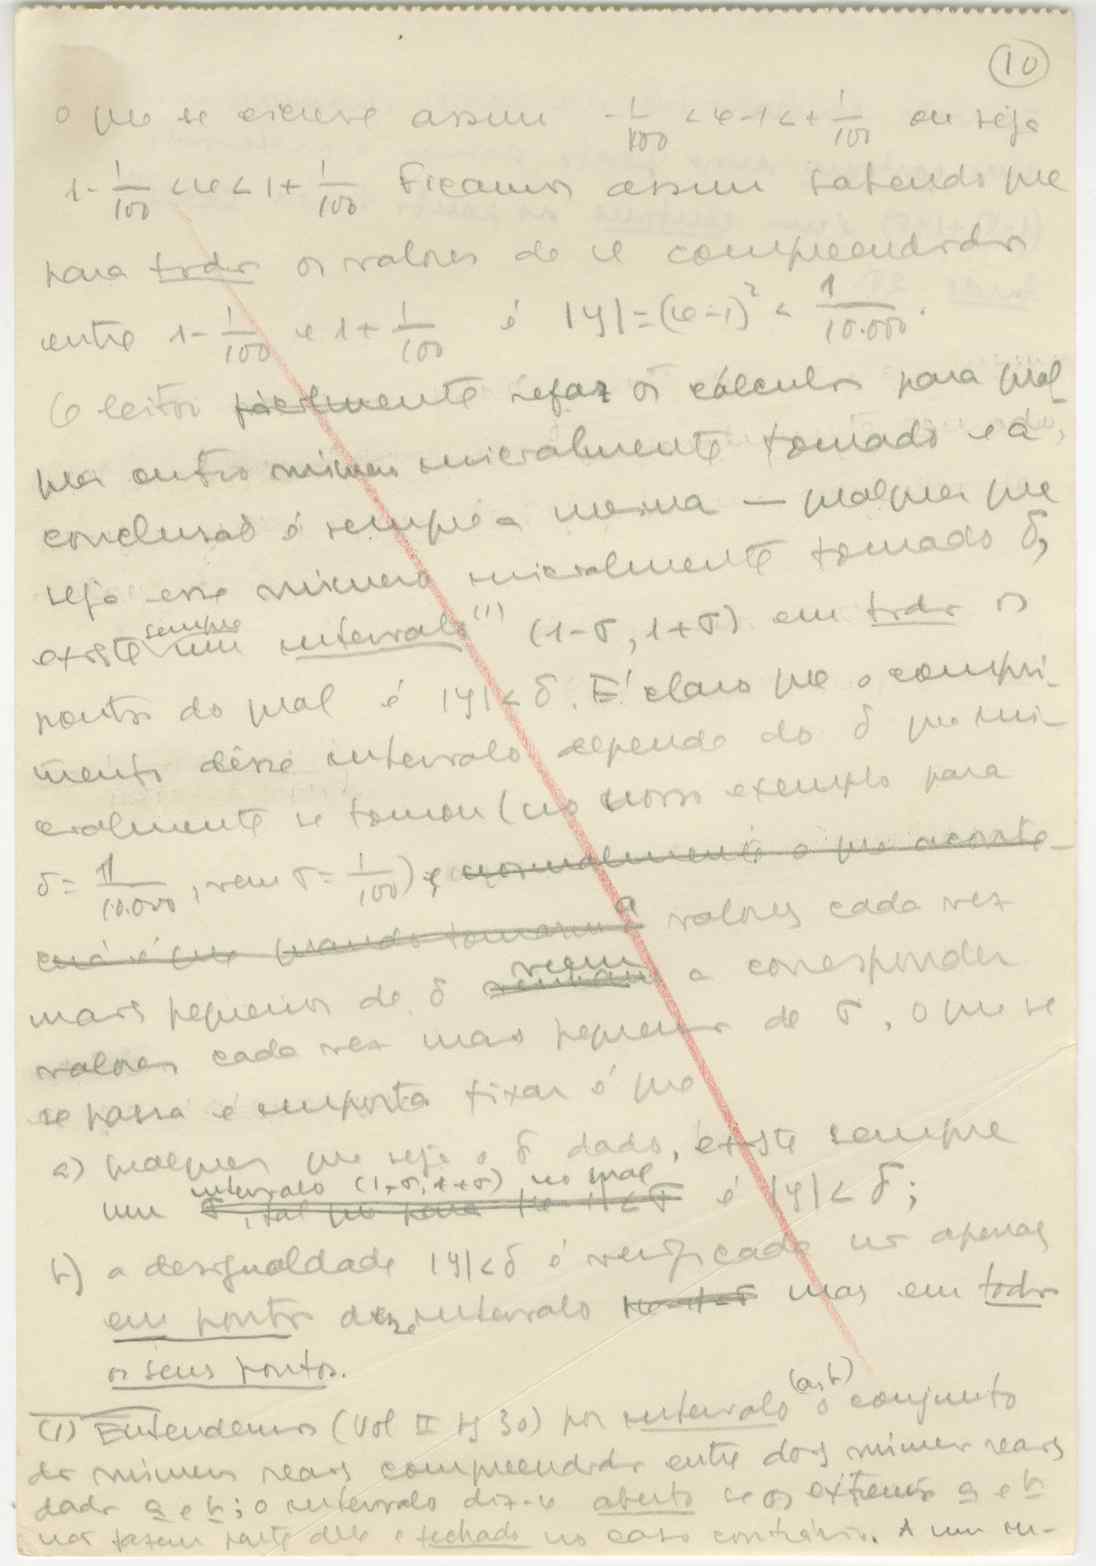 10
o que se escreve assim -1/100 < x-1 < +1/100 ou seja
1-1/100 < x < 1+1/100 Ficamos assim sabendo que
para todos os valores de x compreendidos
entre 1-1/100 e 1+1/100 é |y|=(x-1)² < 1/10.000.
O leitor facilmente refaz os cálculos para qual
quer outro número inicialmente tomado e a
conclusão é sempre a mesma — qualquer que
seja esse número inicialmente tomado δ,
existe sempre um intervalo (1) (1-σ, 1+σ) em todos os
pontos do qual é |y|<δ. É claro que o compri-
mento dêsse intervalo depende do δ que ini-
cialmente se tomou (no nosso exemplo para
δ = 1/10.000, vem σ = 1/100) e, normalmente o que aconte-
cerá é que quando tomarmos a valores cada vez
mais pequenos de δ veem a corresponder
valores cada vez mais pequenos de σ, o que se
se passa e importa fixar é que
a) qualquer que seja o δ dado, existe sempre
um intervalo (1-σ, 1+σ) no qual é |y|<δ;
σ, tal que para |x-1|<σ
b) a desigualdade |y|<δ é verificada não apenas
em pontos desse intervalo mas em todos
os seus pontos.
(1) Entendemos (Vol II pg 30) por intervalo (a,b) o conjunto
dos números reais compreendidos entre dois números reais
dados a e b; o intervalo diz-se aberto se os extremos a e b
não fazem parte dele e fechado no caso contrário. A um in-